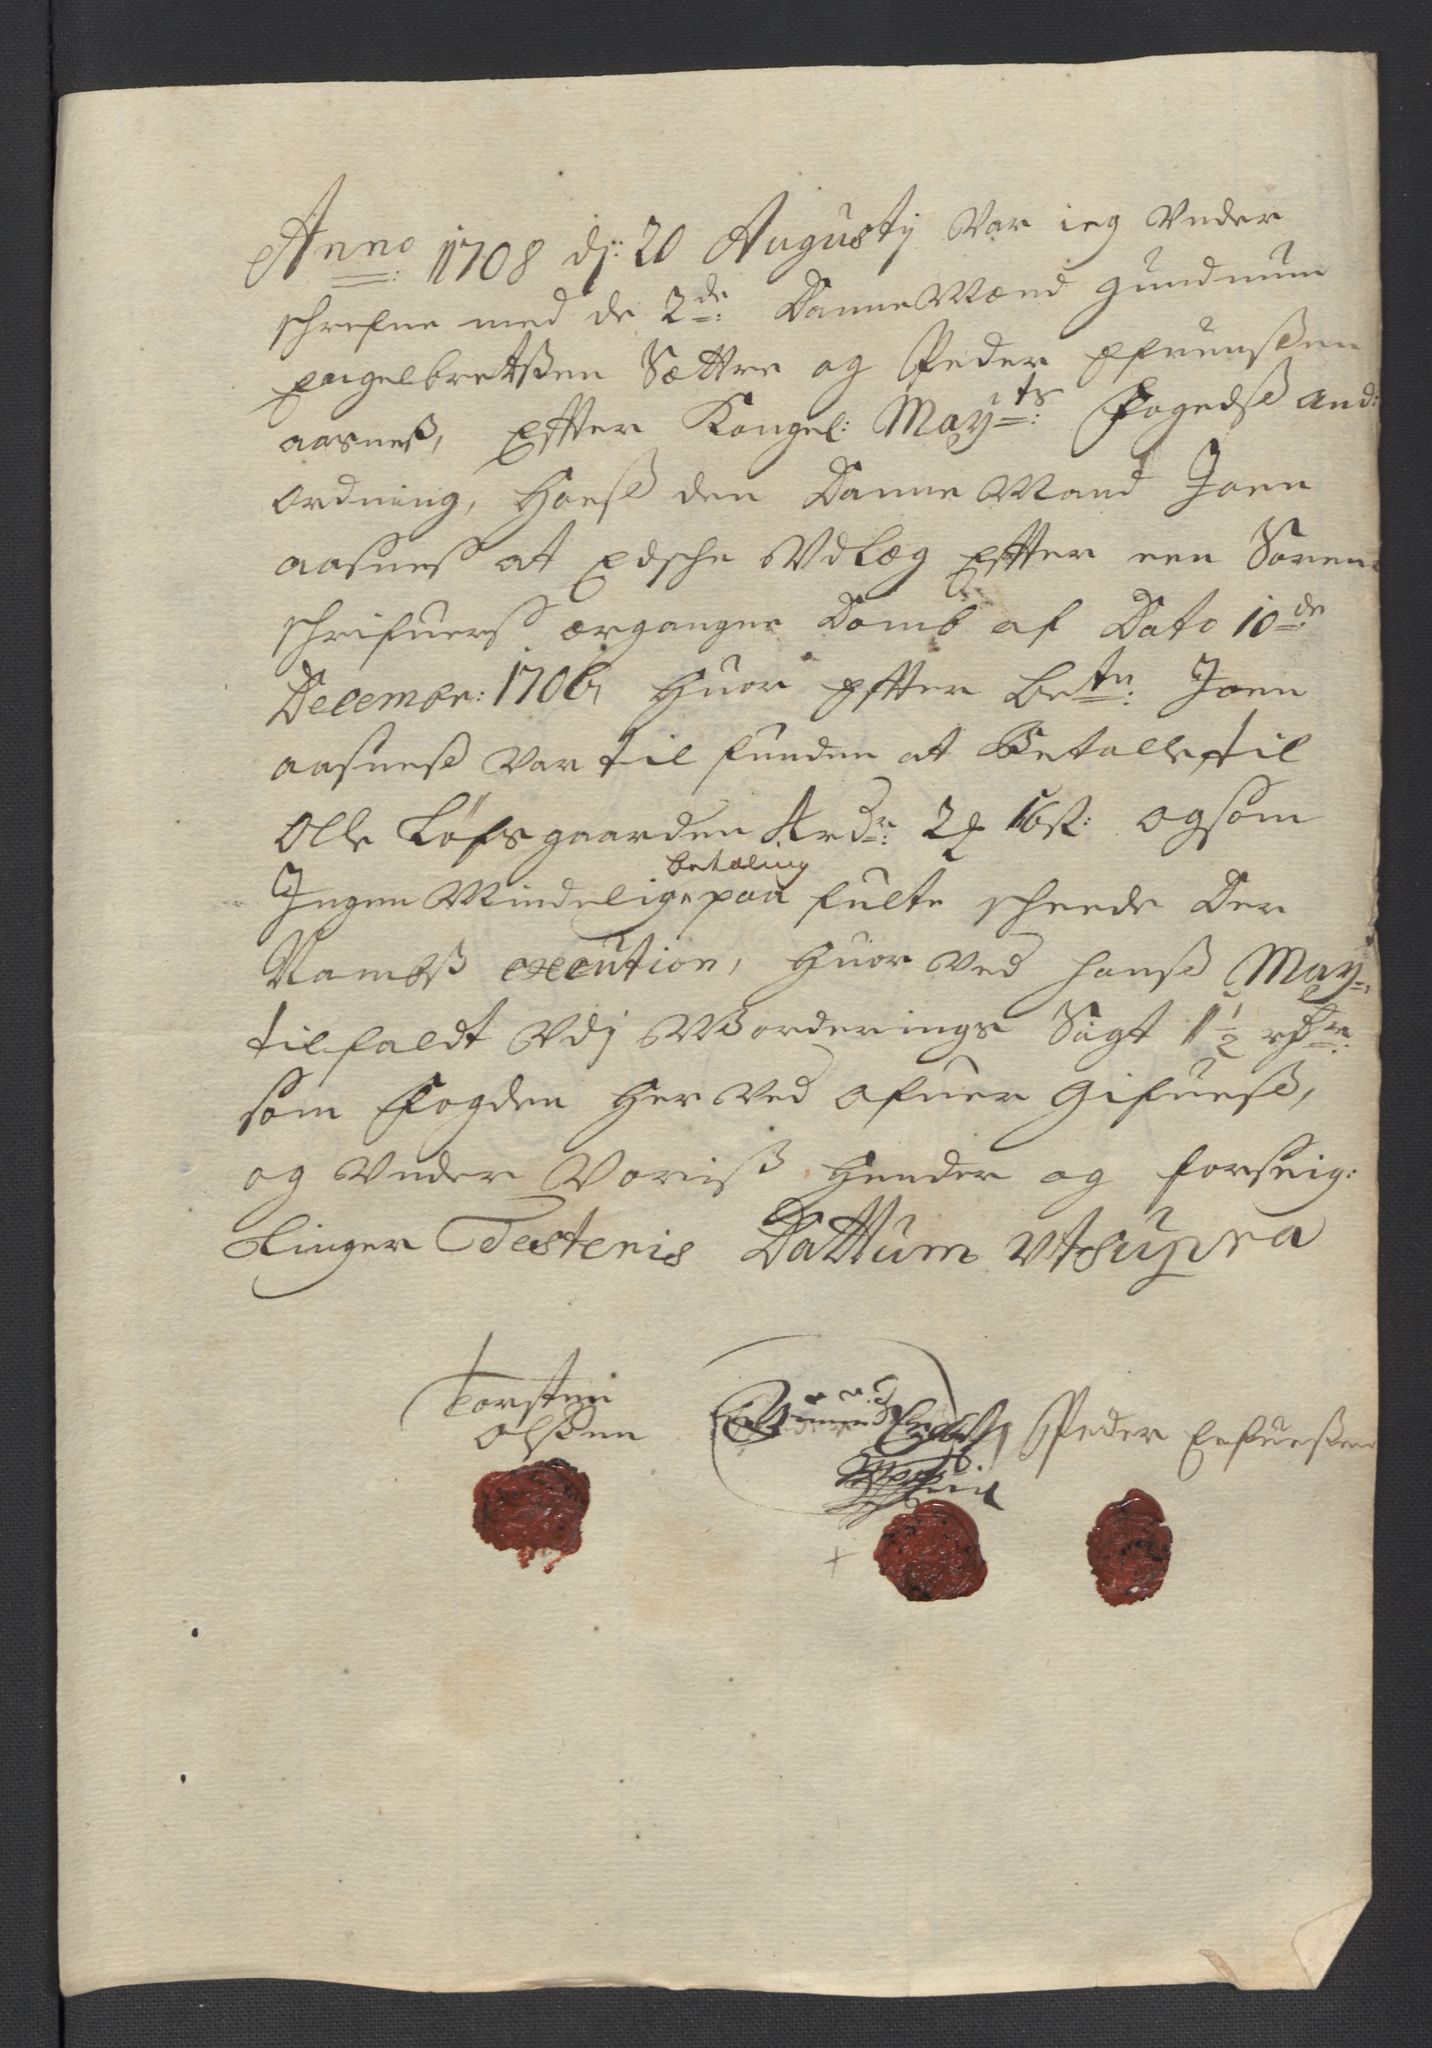 Anno 1708 dj: 20 Augustij Var ieg Vnder
schrefne med de 2de: Danne Mænd Gundmun
Engelbretßen Sættre og Peder Efuenßen
aasneß, Effter Kongel: Mayts: Fogedß And:
ordning, Hoeß den Danne Mand Joen
aasneß at Edsche Vdlæg Effter een Soren
schrifuerß ærgangne Domb af Dato 10de:
Decembr: 1706, Huor Effter betn: Joen
aasneß Var til funden at Betalle til
Olle Løfsgaarden 2 16 s: og som
Ingen Mindelige betaling paa fulte scheede Der
Nambß execution, Huor Ved hanß May:
tilfaldt Vdj Worderings Sagt 1½ rdr:
som Fogden Her Ved ofuer Gifueß,
og Vnder Voriß Hender og forseig:
linger Testeris Dattum Vtsupra
Torsten
Olßen
Peder Enfueßen